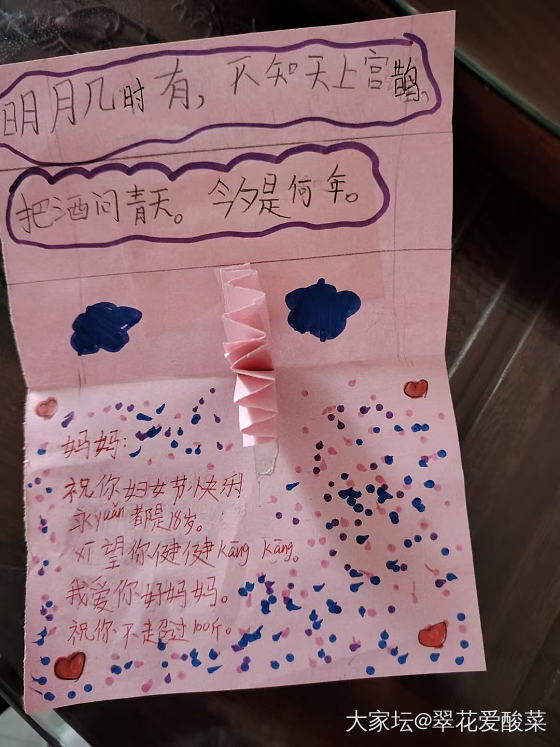 明月几时有，不知天上宫鹊，
把酒问青天。今夕是何年。
妈妈：
祝你妇女节快乐
永yuǎn都是18岁。
希望你健健kāng kāng。
我爱你好妈妈。
祝你不超过100斤。
大家坛@翠花爱酸菜